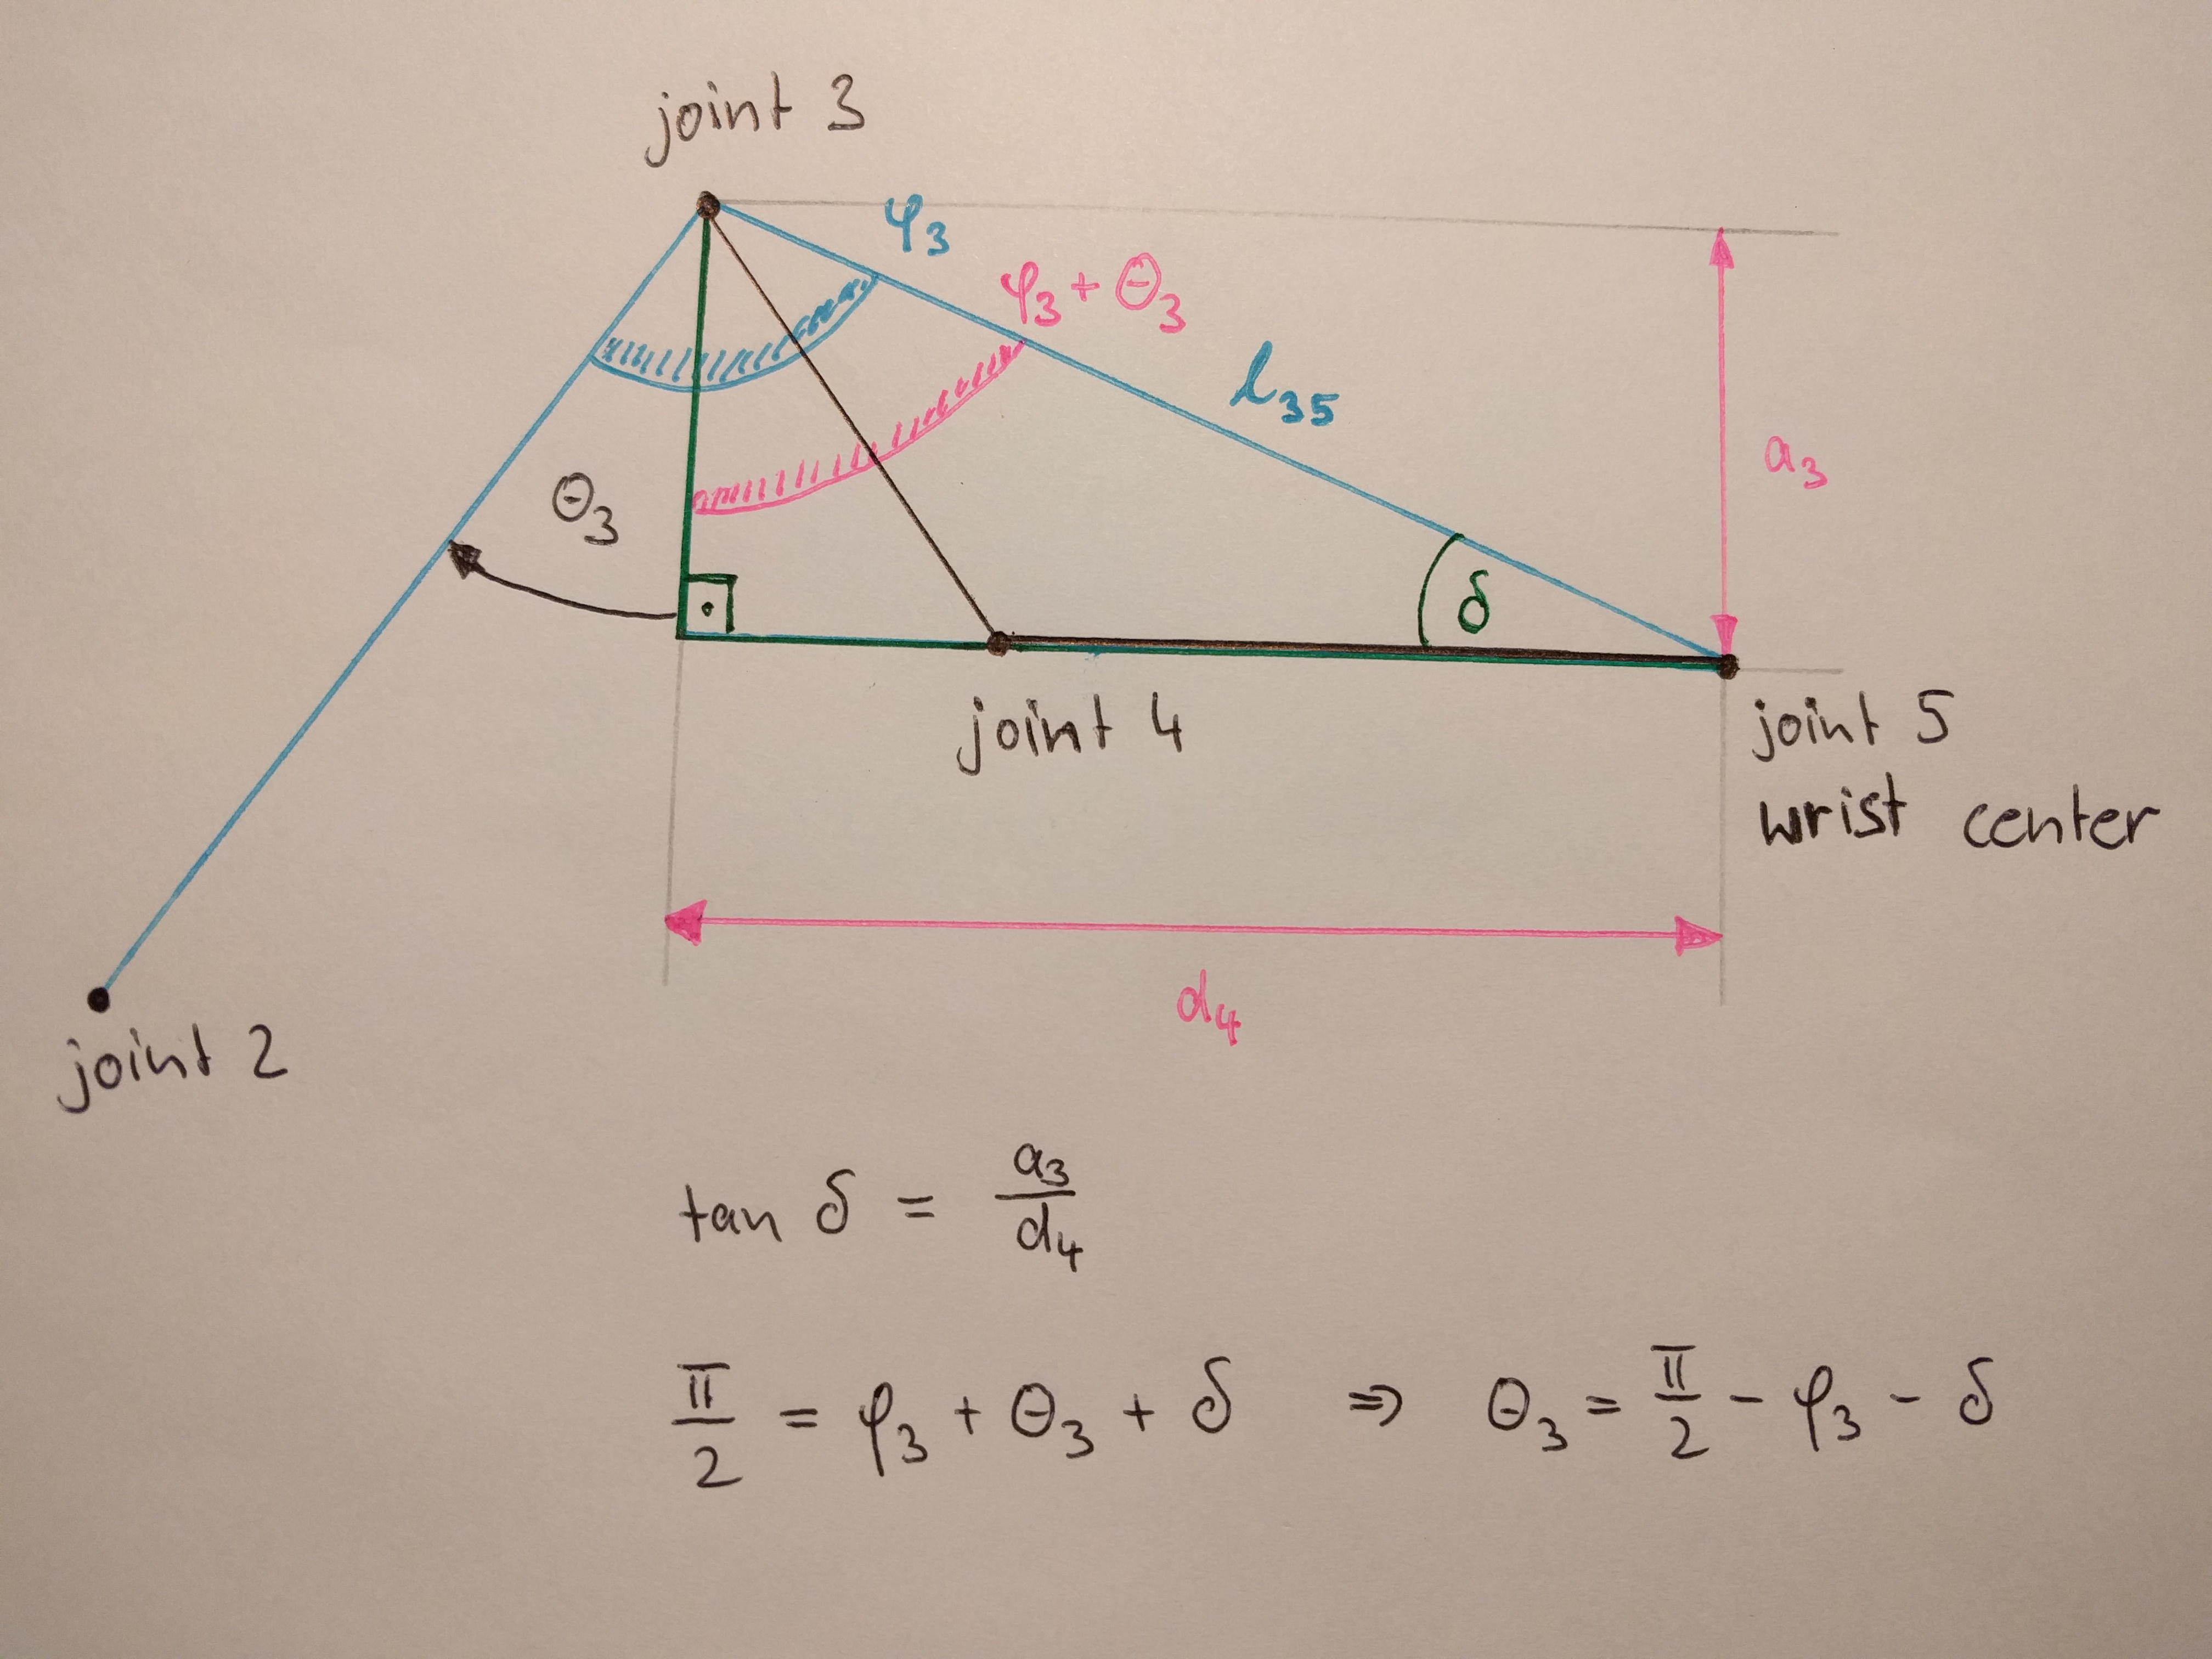 joint 3
φ₃
φ₃ + Θ₃
l₃₅
a₃
Θ₃
δ
joint 4
joint 5
wrist center
d₄
joint 2
tan δ = a₃/d₄
π/2 = φ₃ + Θ₃ + δ ⇒ Θ₃ = π/2 - φ₃ - δ